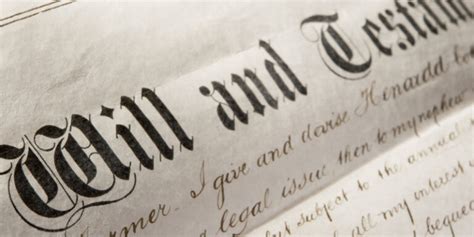 Will and Testam
rmer. I give and devise
legal issue, then to my nephew
but subject to the annual
all my interest